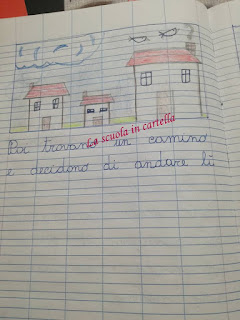 La scuola in cartella
Poi trovano un camino
e decidono di andare lì